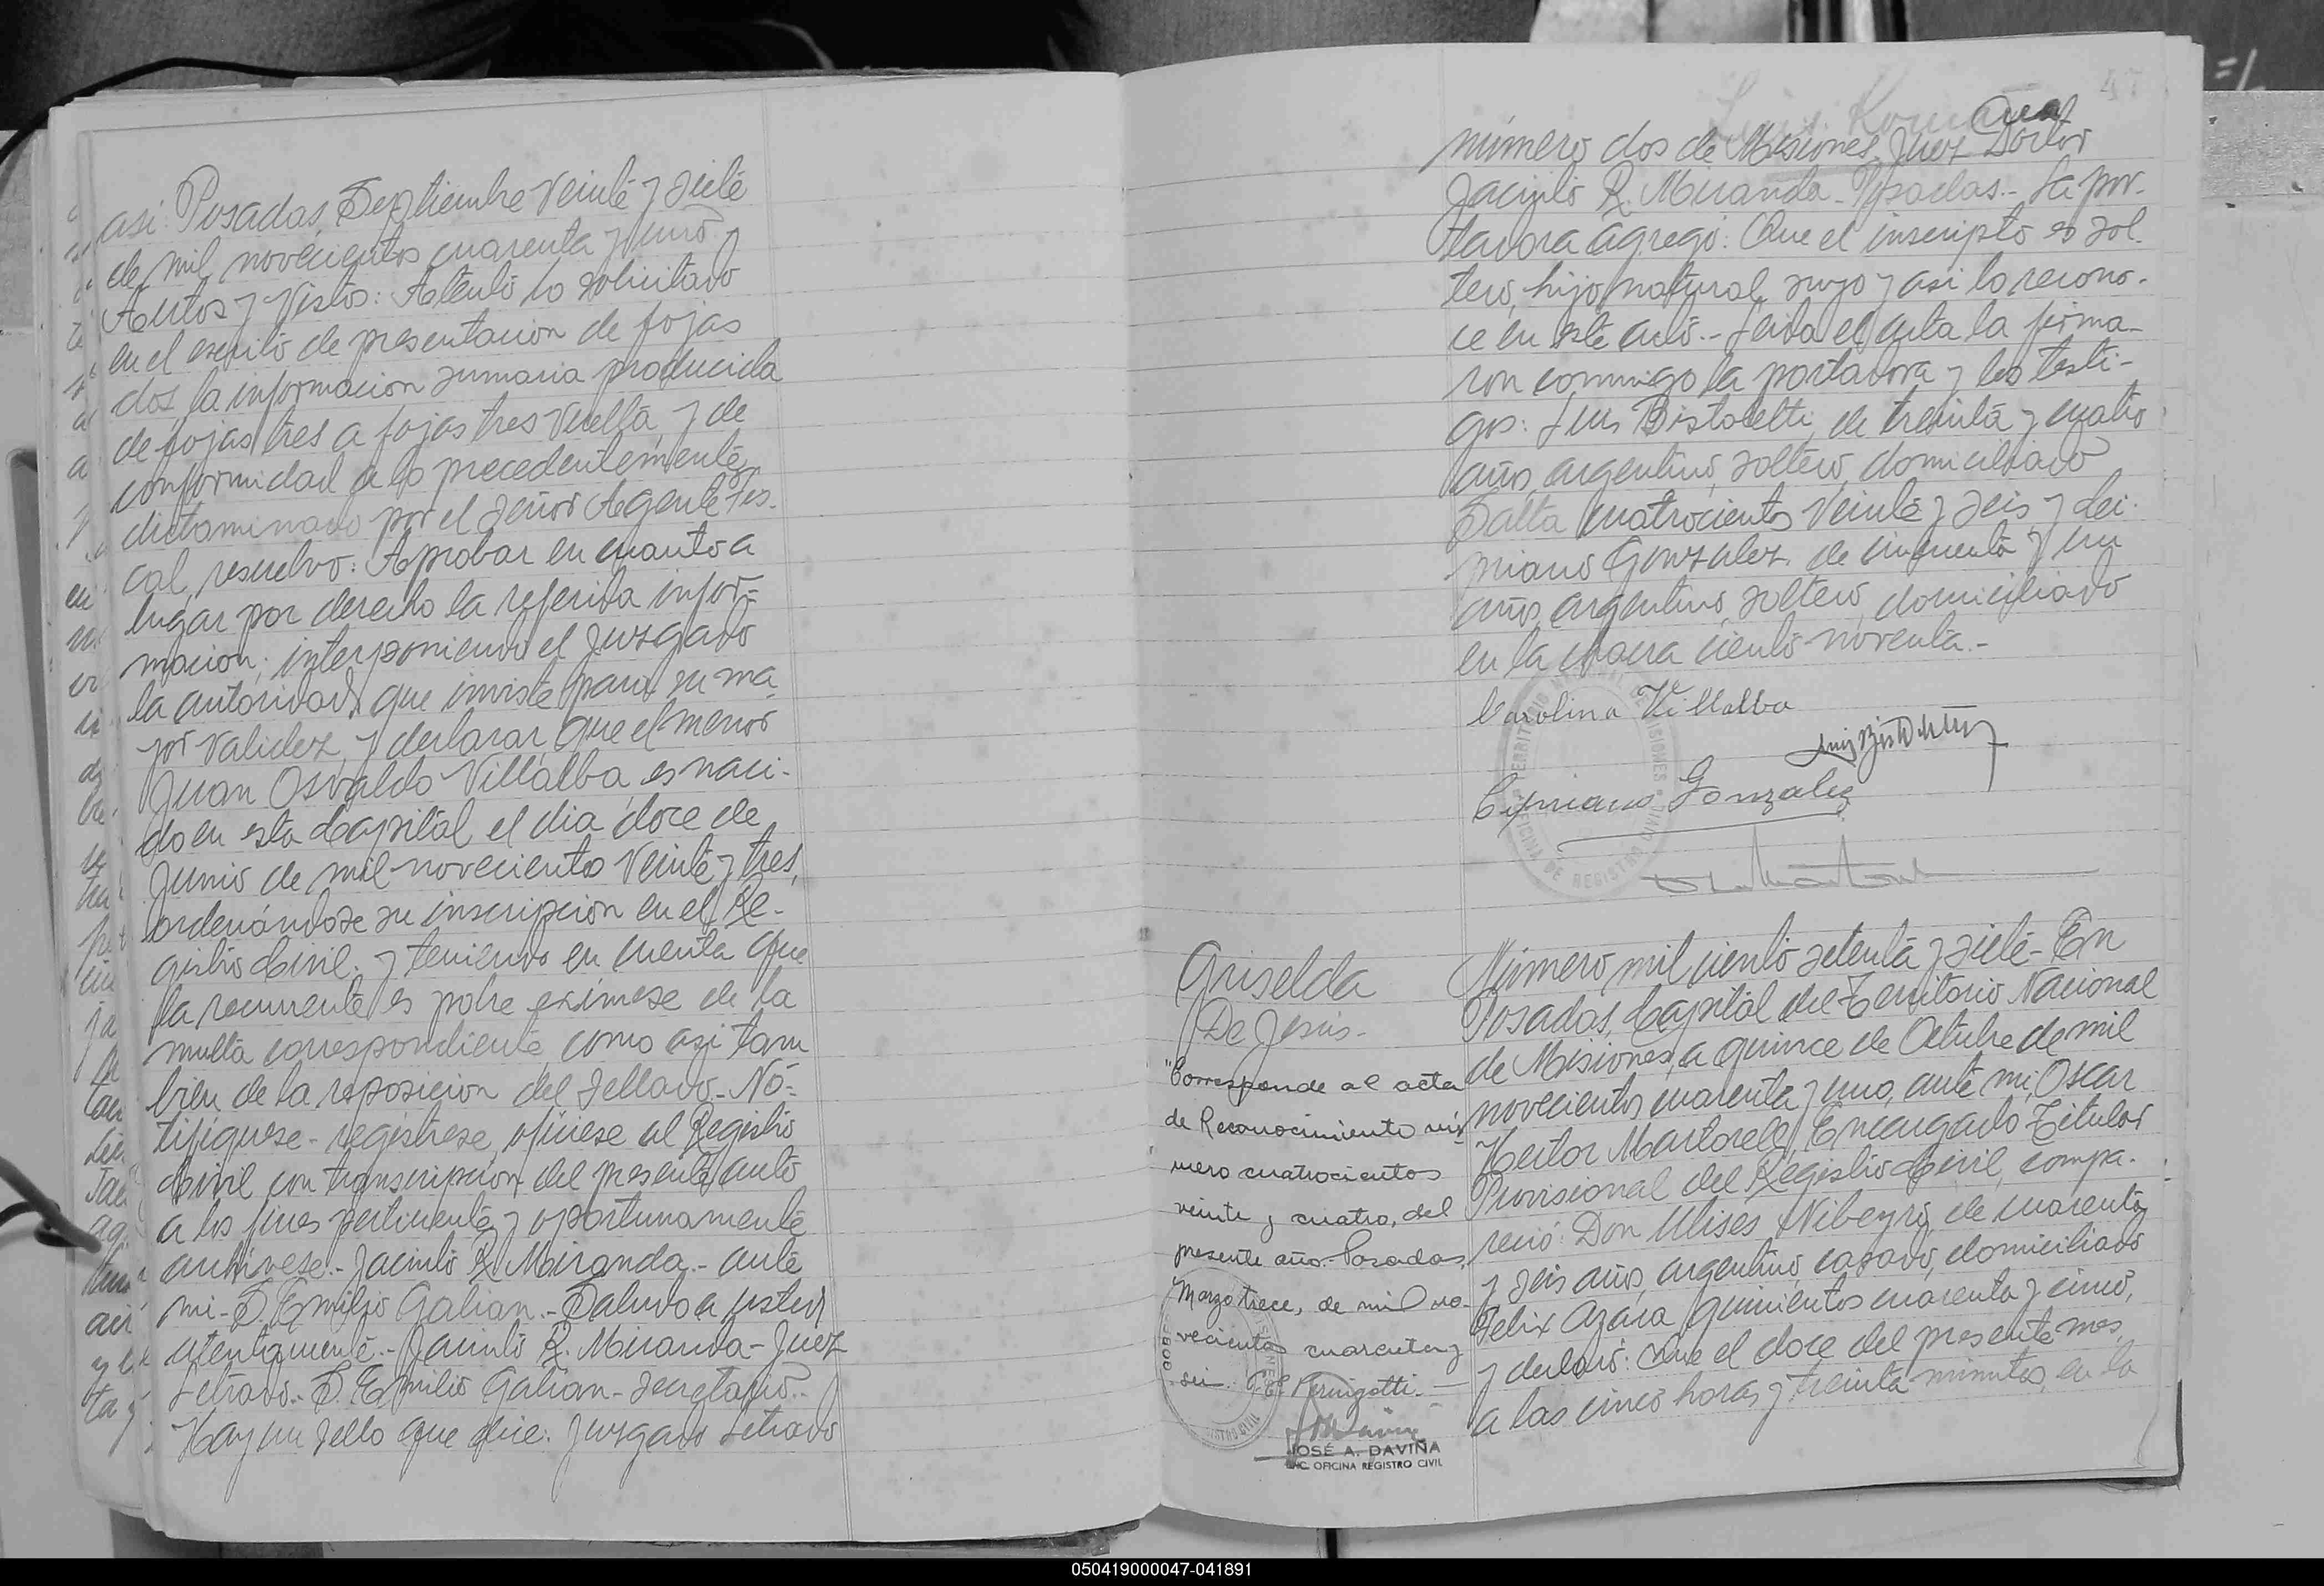 asi: Posadas, Septiembre Veinte y siete
de mil novecientos cuarenta y uno.-
Autos y Vistos: Atento lo solicitado
en el escrito de presentacion de fojas
dos, la informacion sumaria producida
de fojas tres a fojas tres vuelta, y de
conformidad a lo precedentemente
dictaminado por el señor Agente Fis-
cal, resuelvo: Aprobar en cuanto a
lugar por derecho la referida infor-
macion; interponiendo el Juzgado
la autoridad que inviste para su ma-
yor validez, y declarar que el menor
Juan Osvaldo Villalba, es naci-
do en esta Capital el dia doce de
Junio de mil novecientos Veinte y tres,
ordenándose su inscripcion en el Re-
gistro Civil. y teniendo en cuenta que
la recurrente es pobre exímese de la
multa correspondiente, como asi tam
bien de la reposicion del sellado.- No-
tifiquese - registrese, ofíciese al Registro
Civil con transcripcion del presente auto
a los fines pertinentes y oportunamente
archívese.- Jacinto R. Miranda.- ante
mi - S. Emilio Galian.- Saludo a usted
atentamente.- Jacinto R. Miranda - Juez
Letrado.- S. Emilio Galian - Secretario.-
Hay un sello que dice: Juzgado Letrado
47
número dos de Misiones, Juez Doctor
Jacinto R. Miranda - Posadas.- La por-
tadora agregó: Que el inscripto es sol-
tero, hijo natural suyo y asi lo recono-
ce en este acto.- Leida el acta la firma-
ron conmigo la portadora y los testi-
gos: Luis Bistoletti, de treinta y cuatro
años, argentino, soltero, domiciliado
Salta cuatrocientos Veinte y seis, y Ci-
priano Gonzalez, de cincuenta y un
años, argentino, soltero, domiciliado
en la chacra ciento noventa.-
Carolina Villalba
Cipriano Gonzalez
Griselda
De Jesús.-
"Corresponde al acta
de Reconocimiento nú-
mero cuatrocientos
veinte y cuatro, del
presente año.- Posadas,
Marzo trece, de mil no-
vecientos cuarenta y
seis.
JOSÉ A. DAVIÑA
ENC. OFICINA REGISTRO CIVIL
Número mil ciento setenta y siete - En
Posadas, Capital del Territorio Nacional
de Misiones, a quince de Octubre de mil
novecientos cuarenta y uno, ante mi, Oscar
Hector Martorell, Encargado Titular
Provisional del Registro Civil, compa-
reció: Don Ulises Nibeyro, de cuarenta
y seis años, argentino, casado, domiciliado
Felix Azara quinientos cuarenta y cinco,
y declaró: Que el doce del presente mes,
a las cinco horas y treinta minutos, en la
050419000047-041891